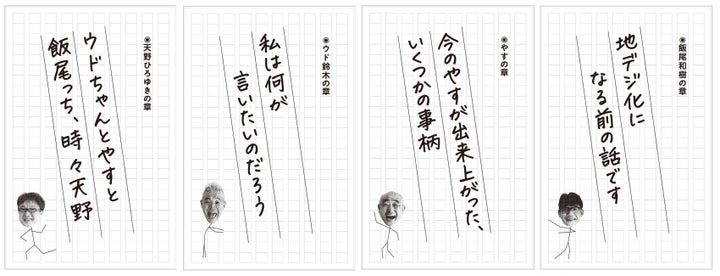 ◉天野ひろゆきの章
ウドちゃんとやすと
飯尾っち、時々天野
◉ウド鈴木の章
私は何が
言いたいのだろう
◉やすの章
今のやすが出来上がった、
いくつかの事柄
◉飯尾和樹の章
地デジ化に
なる前の話です